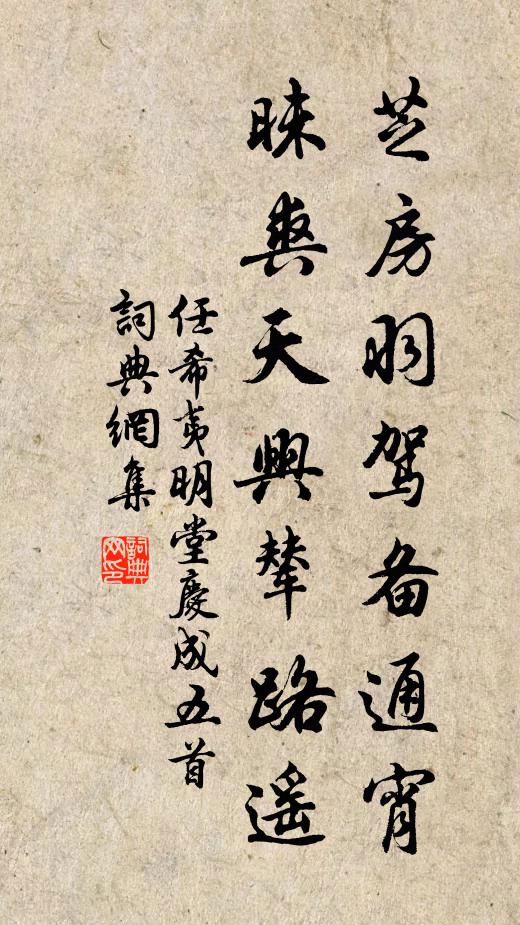 芝房羽驾备通宵
昧爽天興輦路遥
任希夷明堂慶成五首
詞典網集
詞典网印